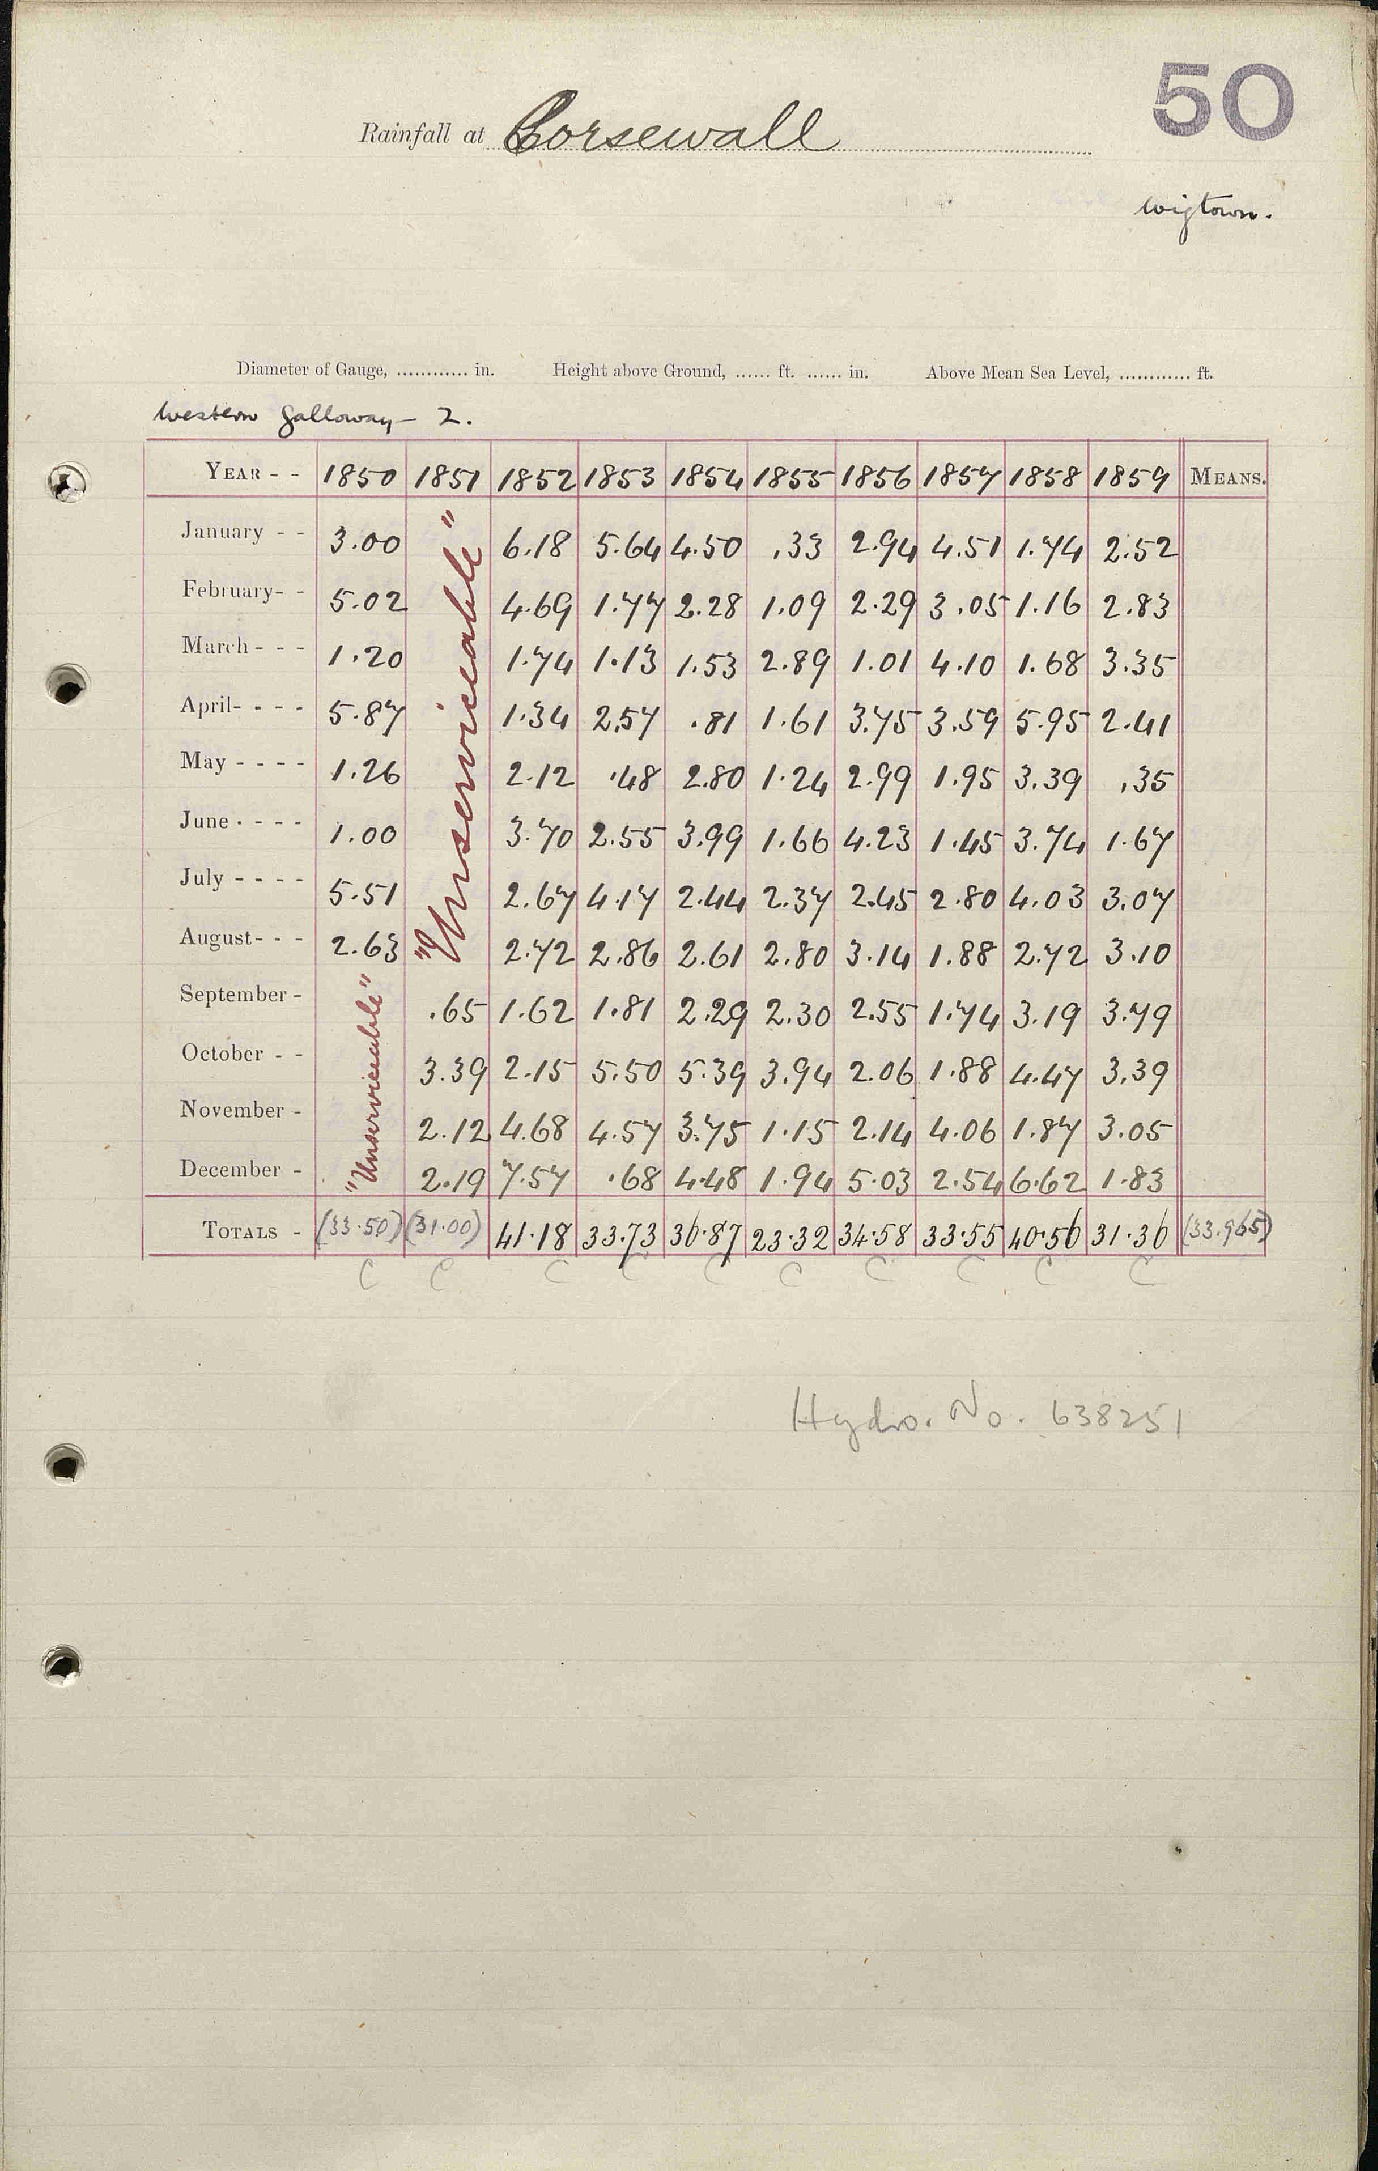 50
Rainfall at Corsewall
Wigtown.
Diameter of Gauge, ............ in. Height above Ground, ...... ft. ...... in. Above Mean Sea Level, ............ ft.
Western Galloway - 2.
YEAR - - 1850 1851 1852 1853 1854 1855 1856 1857 1858 1859 MEANS.
January - - 3.00 6.18 5.64 4.50 .33 2.94 4.51 1.74 2.52
February - - 5.02 4.69 1.77 2.28 1.09 2.29 3.05 1.16 2.83
March - - - 1.20 1.74 1.13 1.53 2.89 1.01 4.10 1.68 3.35
April - - - - 5.87 1.34 2.57 .81 1.61 3.75 3.59 5.95 2.41
May - - - - 1.26 2.12 .48 2.80 1.24 2.99 1.95 3.39 .35
June - - - - 1.00 3.70 2.55 3.99 1.66 4.23 1.45 3.74 1.67
July - - - - 5.51 2.67 4.17 2.44 2.37 2.45 2.80 4.03 3.07
August - - - 2.63 "Unserviceable" 2.72 2.86 2.61 2.80 3.14 1.88 2.72 3.10
September - .65 1.62 1.81 2.29 2.30 2.55 1.74 3.19 3.79
October - - 3.39 2.15 5.50 5.39 3.94 2.06 1.88 4.47 3.39
November - 2.12 4.68 4.57 3.75 1.15 2.14 4.06 1.87 3.05
December - "Unserviceable" 2.19 7.57 .68 4.48 1.94 5.03 2.54 6.62 1.83
TOTALS - (33.50) (31.00) 41.18 33.73 36.87 23.32 34.58 33.55 40.56 31.36 (33.965)
C C C C C C C C C C
Hydro. No. 638251